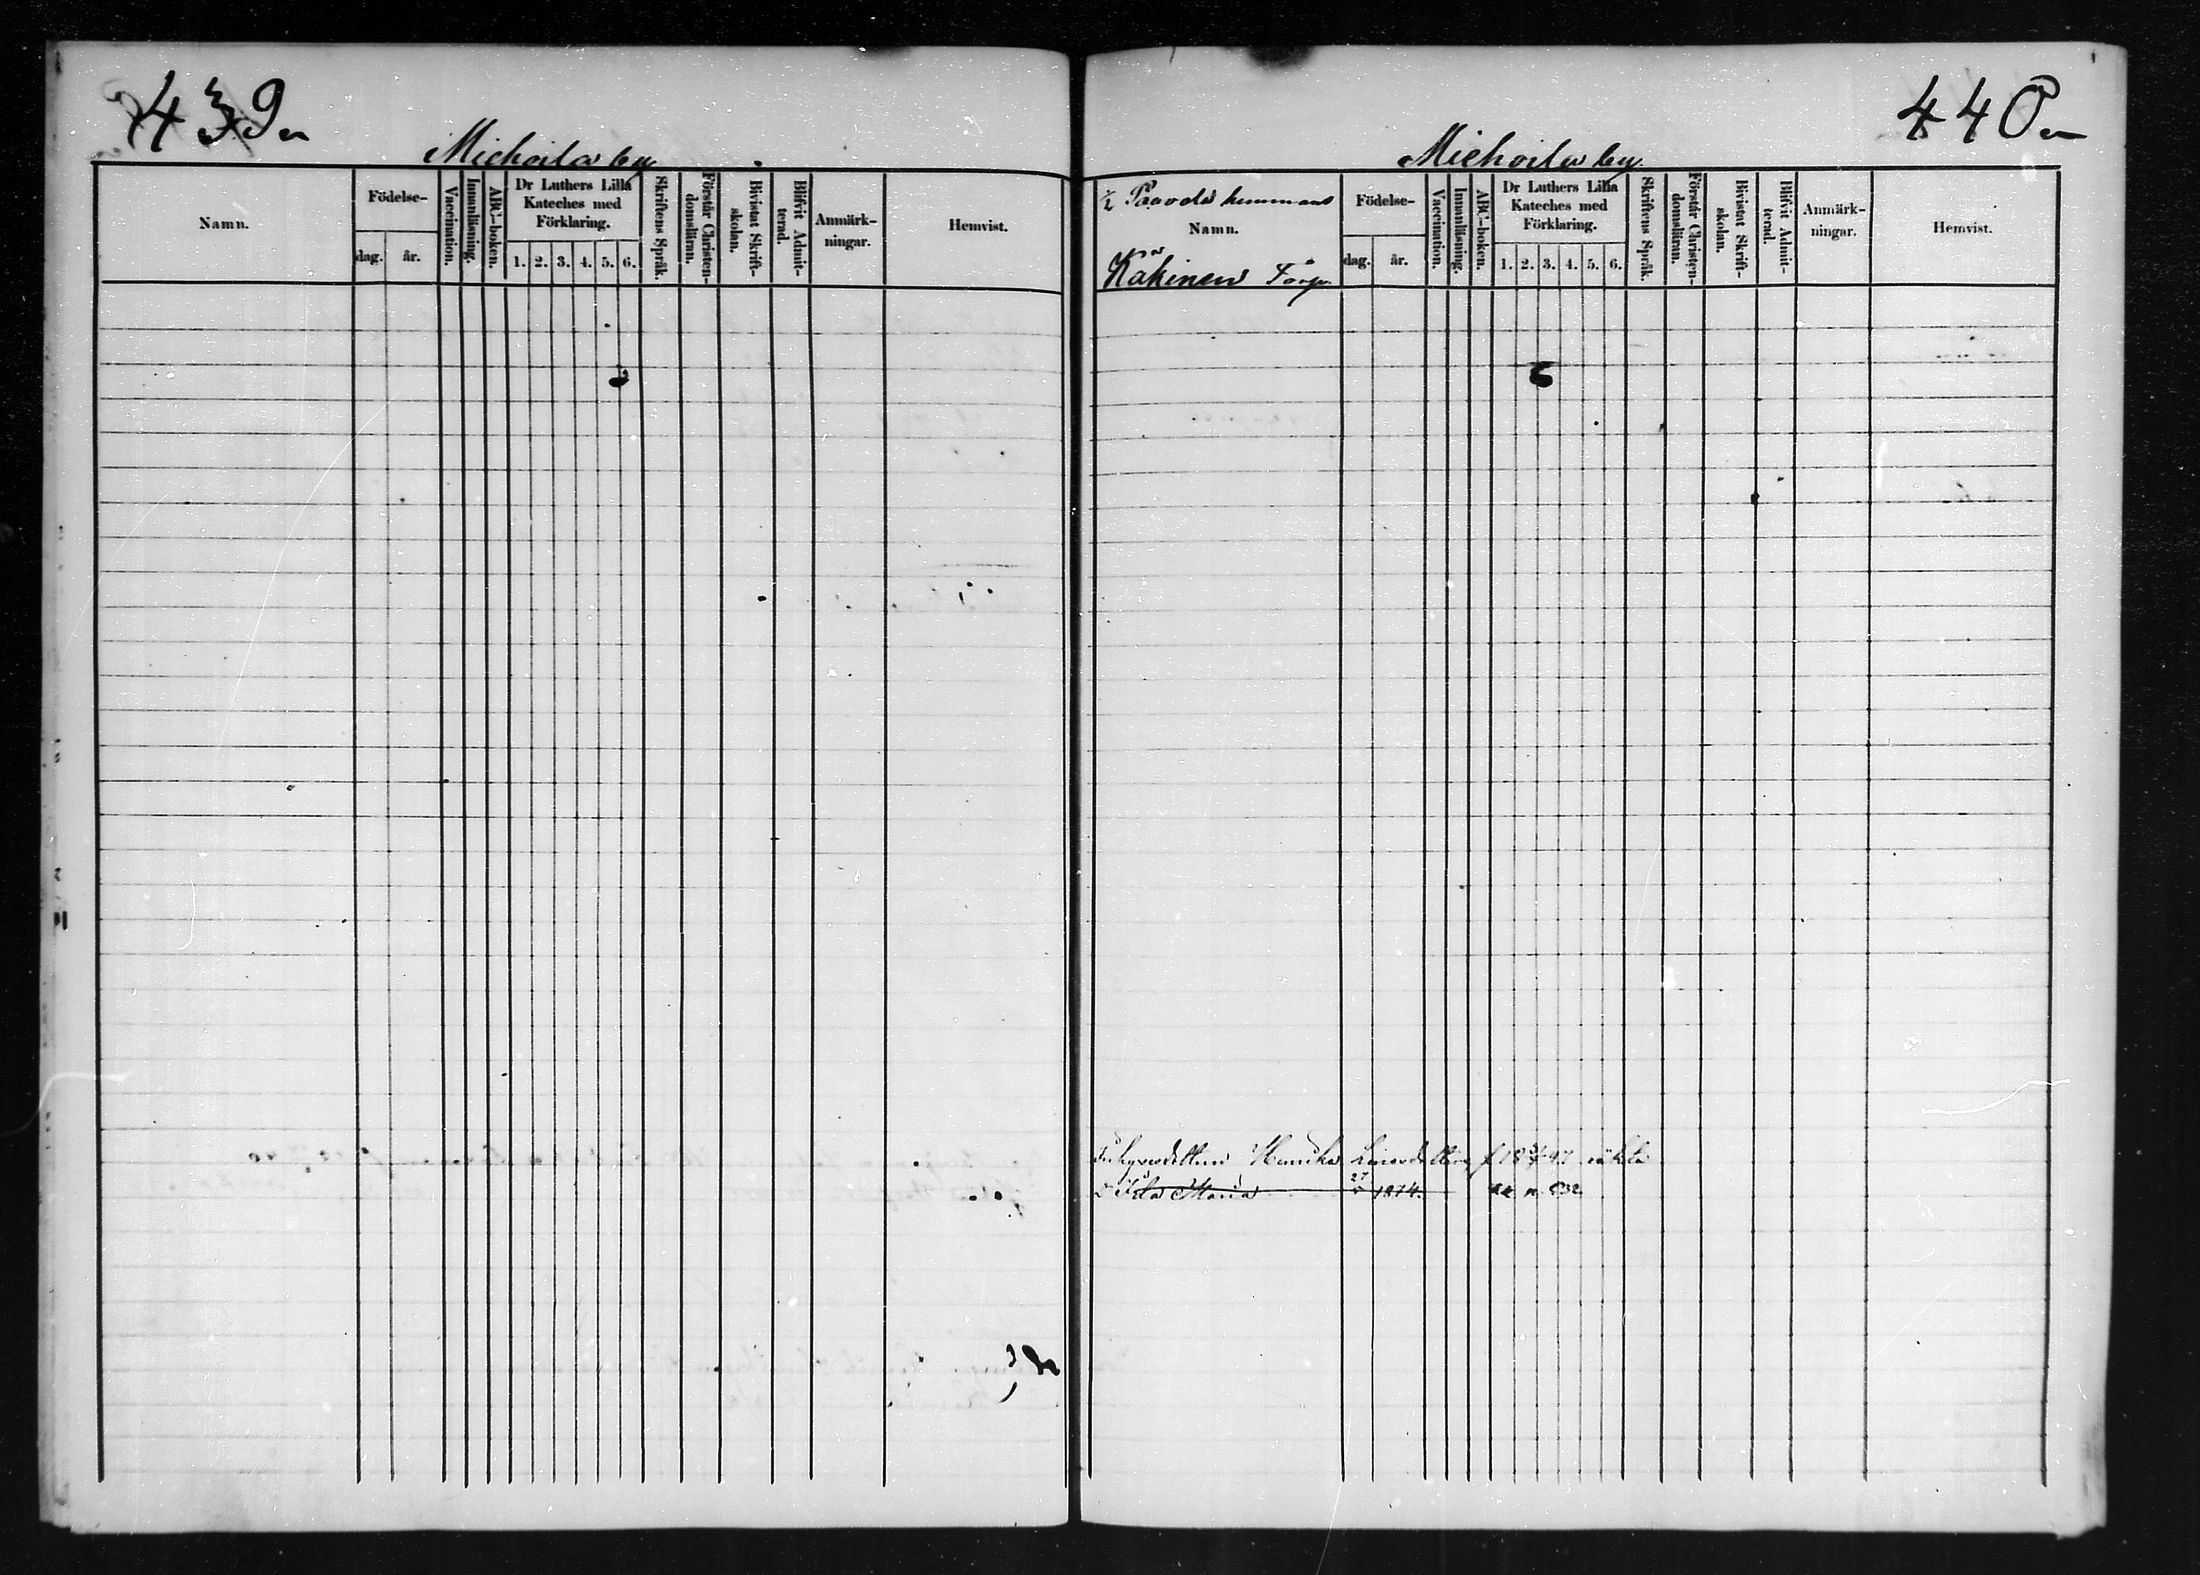 439
Michoila by
Namn.
Födelse-
dag.
år.
Vaccination.
Innanläsning.
ABC-boken.
Dr Luthers Lilla
Kateches med
Förklaring.
1. 2. 3. 4. 5. 6.
Skriftens Språk.
Förstår Christen-
domsläran.
Bivistat Skrift-
skolan.
Blifvit Admit-
terad.
Anmärk-
ningar.
Hemvist.
440
Michoila by
1/2 Paavola hemmans
Namn.
Kakinen Torp
Födelse-
dag.
år.
Vaccination.
Innanläsning.
ABC-boken.
Dr Luthers Lilla
Kateches med
Förklaring.
1. 2. 3. 4. 5. 6.
Skriftens Språk.
Förstår Christen-
domsläran.
Bivistat Skrift-
skolan.
Blifvit Admit-
terad.
Anmärk-
ningar.
Hemvist.
Henrika
Maria 27 1874